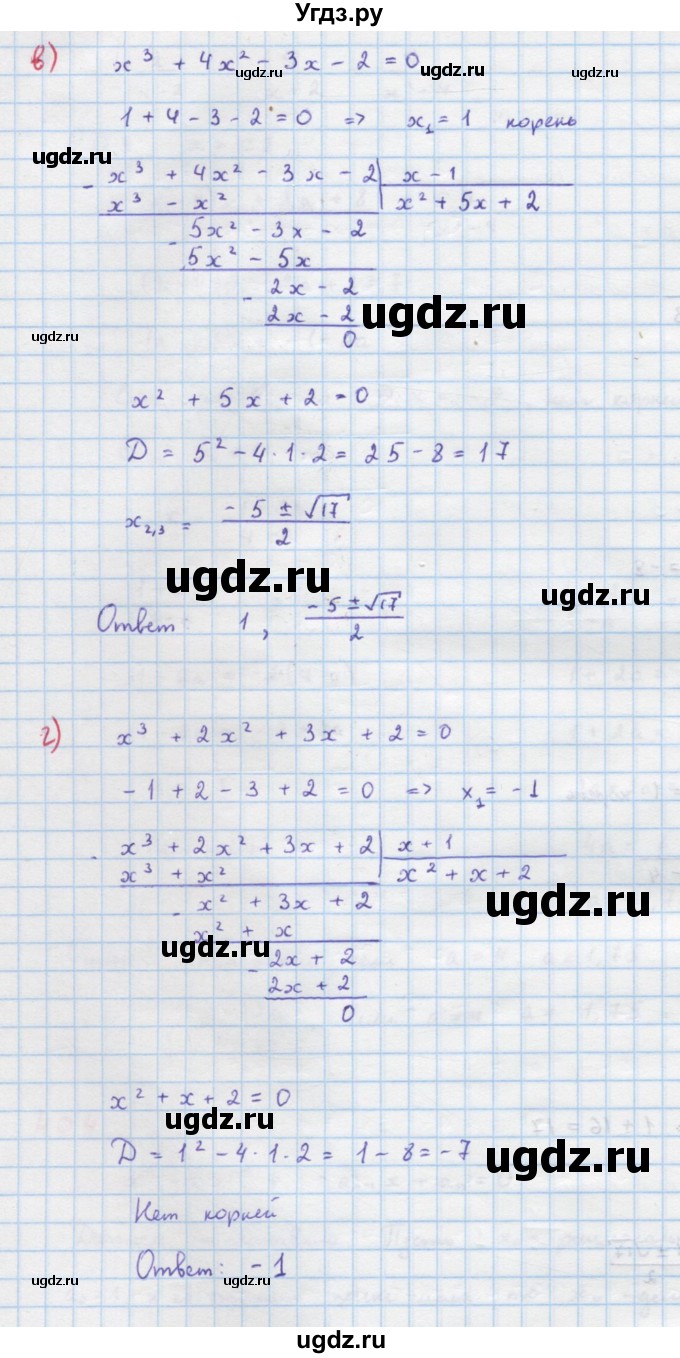 Угдз.ру
в) x³ + 4x² - 3x - 2 = 0
ugdz.ru ugdz.ru
1 + 4 - 3 - 2 = 0 => x₁ = 1 корень
ugdz.ru
- x³ + 4x² - 3x - 2 | x - 1
x³ - x² x² + 5x + 2
- 5x² - 3x - 2
5x² - 5x
- 2x - 2
2x - 2 ugdz.ru
ugdz.ru 0
x² + 5x + 2 = 0
D = 5² - 4·1·2 = 25 - 8 = 17
ugdz.ru ugdz.ru
x₂,₃ = (-5 ± √17)/2
ugdz.ru ugdz.ru
Ответ: 1, (-5 ± √17)/2
ugdz.ru
г) x³ + 2x² + 3x + 2 = 0
-1 + 2 - 3 + 2 = 0 => x₁ = -1
- x³ + 2x² + 3x + 2 | x + 1
x³ + x² x² + x + 2
- x² + 3x + 2 ugdz.ru
x² + x
ugdz.ru
- 2x + 2
2x + 2
ugdz.ru 0
x² + x + 2 = 0
ugdz.ru
D = 1² - 4·1·2 = 1 - 8 = -7
ugdz.ru
Нет корней
Ответ: -1
ugdz.ru ugdz.ru ugdz.ru
ugdz.ru